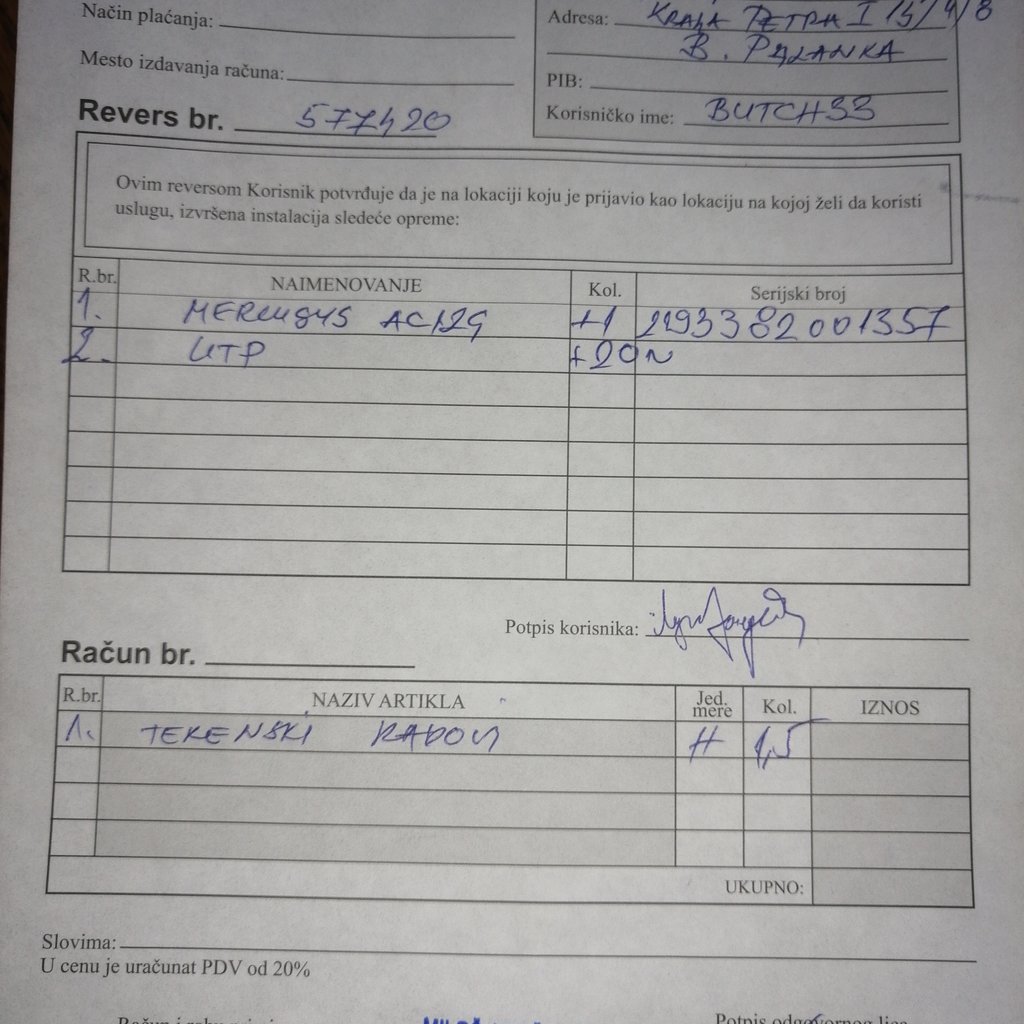 Način plaćanja:
Adresa: KRALJA PETRA I 15/4/8
B. PALANKA
Mesto izdavanja računa:
PIB:
Revers br. 577420
Korisničko ime: BUTCH33
Ovim reversom Korisnik potvrđuje da je na lokaciji koju je prijavio kao lokaciju na kojoj želi da koristi
uslugu, izvršena instalacija sledeće opreme:
R.br. NAIMENOVANJE Kol. Serijski broj
1. MERCUSYS AC12G +1 2193382001357
2. UTP +20m
Potpis korisnika:
Račun br.
R.br. NAZIV ARTIKLA Jed. mere Kol. IZNOS
1. TERENSKI RADOVI H 1,5
UKUPNO:
Slovima:
U cenu je uračunat PDV od 20%
Potpis odgovornog lica